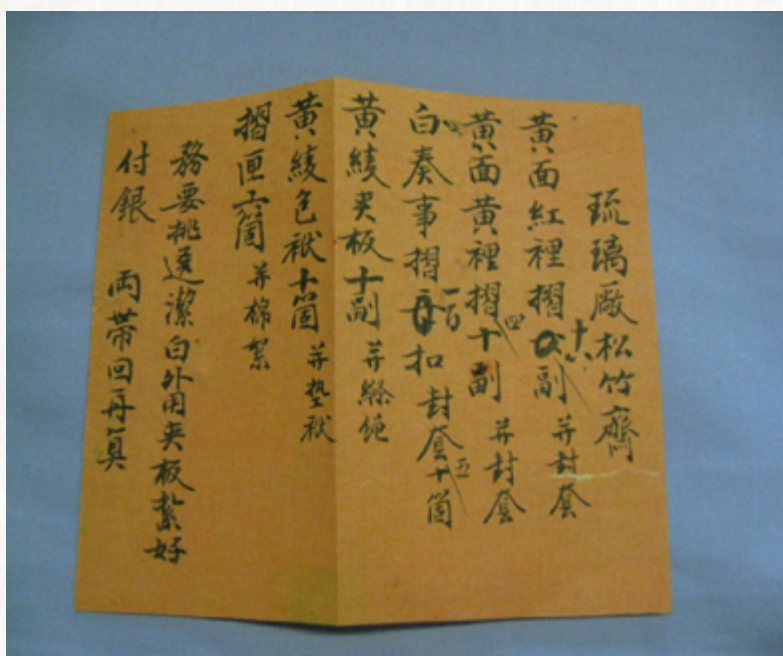 琉璃廠松竹齋
黃面紅裡摺十八副 并封套
黃面黃裡摺十四副 并封套
白奏事摺一百扣 封套十五箇
黃綾夾板十副 并縧繩
黃綾包袱十箇 并墊袱
摺匣箇 并棉絮
務要挑選潔白外用夾板紮好
付銀 両帶回再具